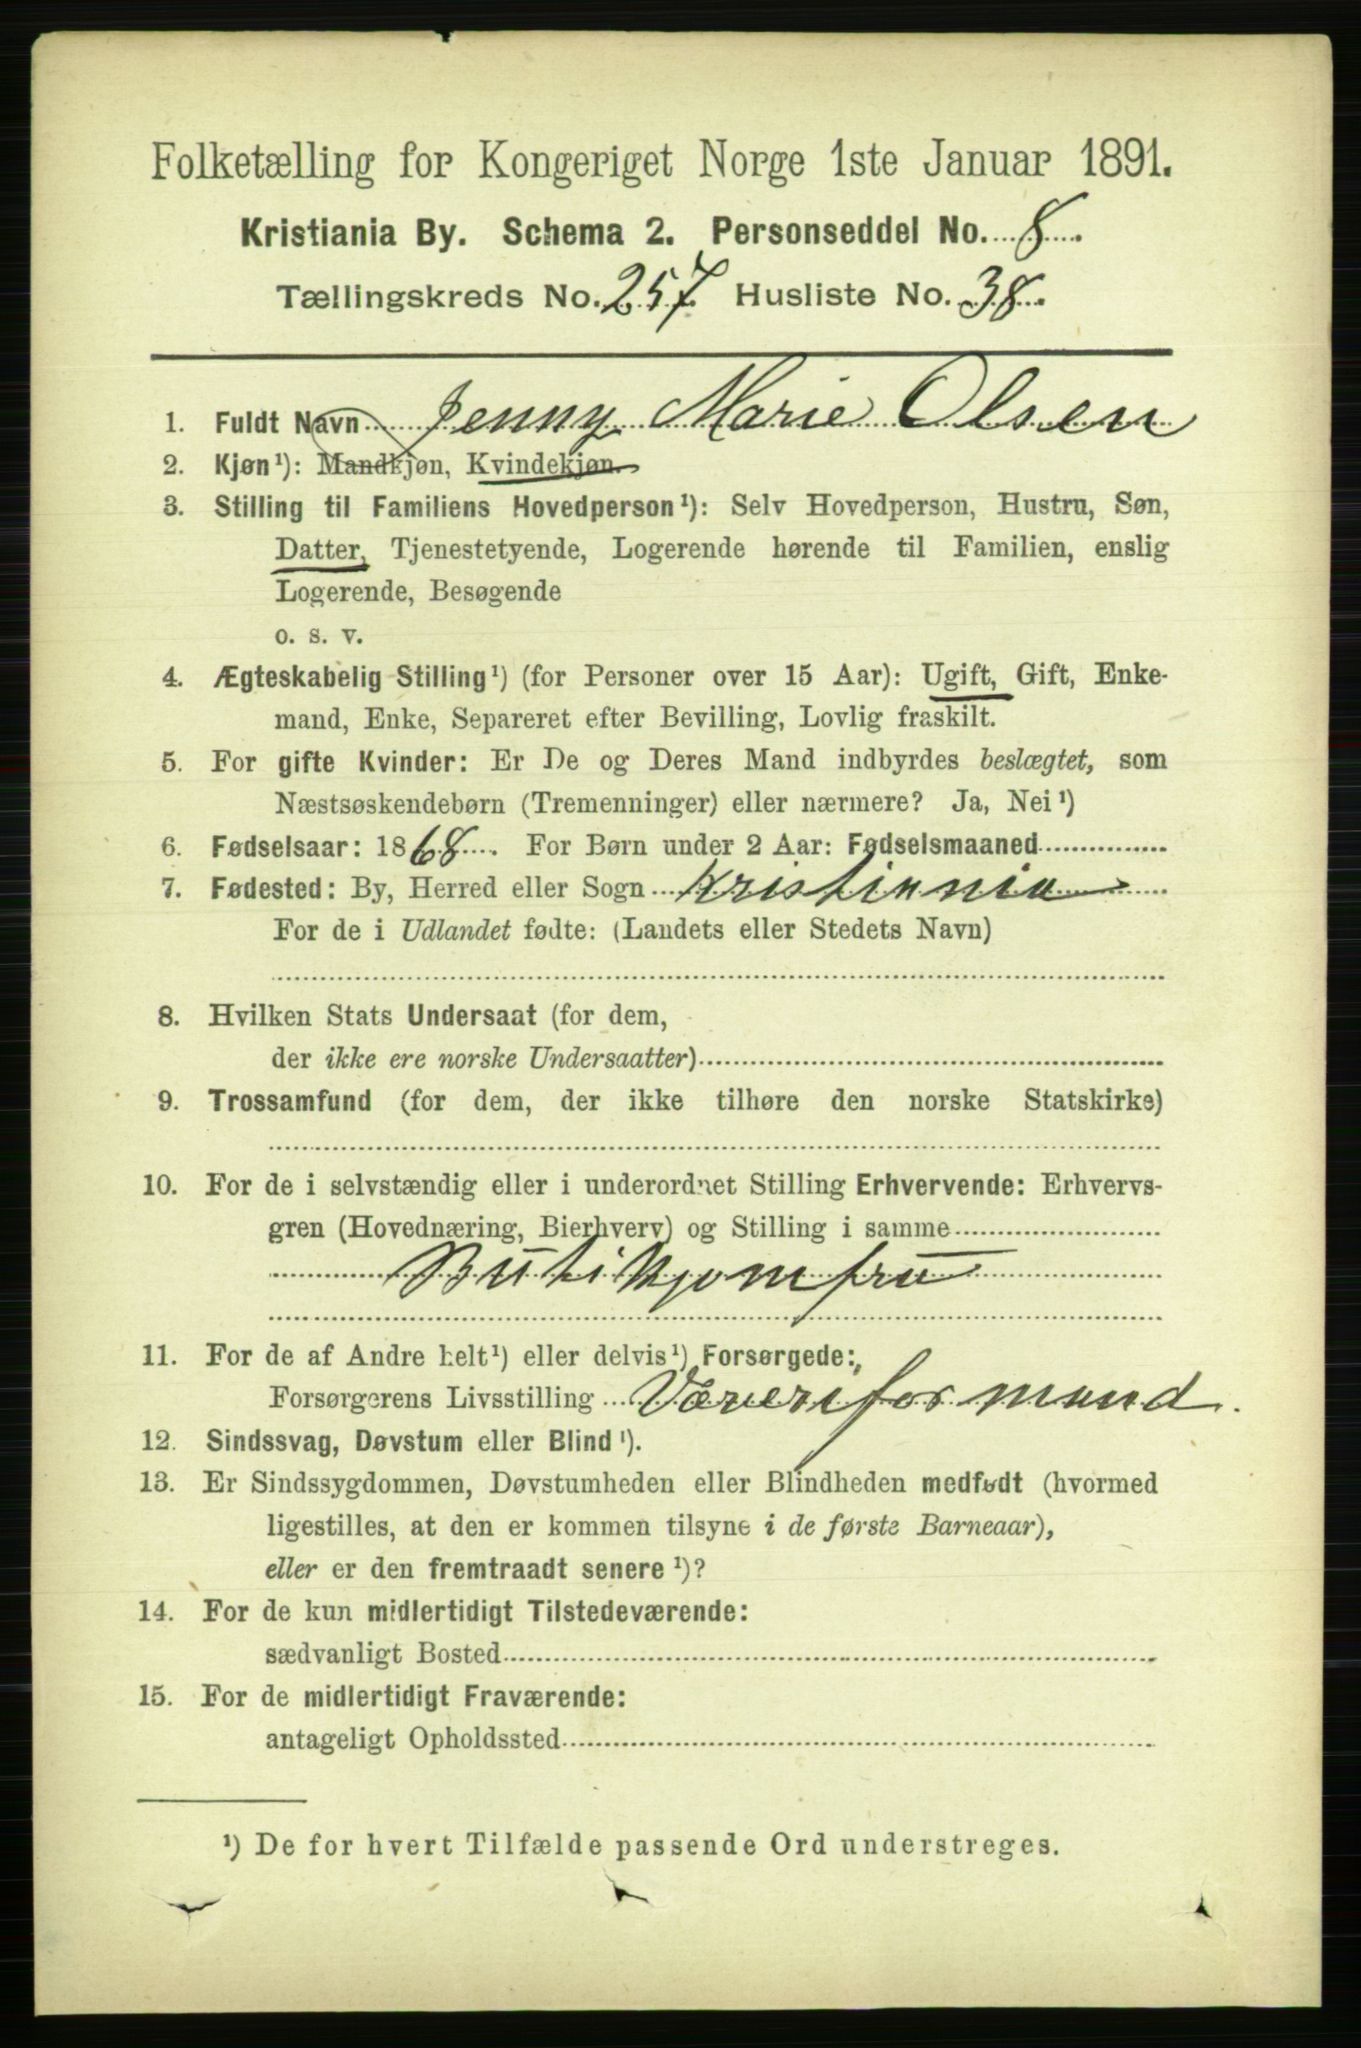 Folketælling for Kongeriget Norge 1ste Januar 1891.
Kristiania By. Schema 2. Personseddel No. 8
Tællingskreds No. 257 Husliste No. 38.
1. Fuldt Navn Jenny Marie Olsen
2. Kjøn¹): Mandkjøn, Kvindekjøn.
3. Stilling til Familiens Hovedperson¹): Selv Hovedperson, Hustru, Søn,
Datter, Tjenestetyende, Logerende hørende til Familien, enslig
Logerende, Besøgende
o. s. v.
4. Ægteskabelig Stilling¹) (for Personer over 15 Aar): Ugift, Gift, Enke-
mand, Enke, Separeret efter Bevilling, Lovlig fraskilt.
5. For gifte Kvinder: Er De og Deres Mand indbyrdes beslægtet, som
Næstsøskendebørn (Tremenninger) eller nærmere? Ja, Nei¹)
6. Fødselsaar: 1868. For Børn under 2 Aar: Fødselsmaaned
7. Fødested: By, Herred eller Sogn Kristiania
For de i Udlandet fødte: (Landets eller Stedets Navn)
8. Hvilken Stats Undersaat (for dem,
der ikke ere norske Undersaatter)
9. Trossamfund (for dem, der ikke tilhøre den norske Statskirke)
10. For de i selvstændig eller i underordnet Stilling Erhvervende: Erhvervs-
gren (Hovednæring, Bierhverv) og Stilling i samme
Butikjomfru
11. For de af Andre helt¹) eller delvis¹) Forsørgede:
Forsørgerens Livsstilling Væveriformand.
12. Sindssvag, Døvstum eller Blind¹).
13. Er Sindssygdommen, Døvstumheden eller Blindheden medfødt (hvormed
ligestilles, at den er kommen tilsyne i de første Barneaar),
eller er den fremtraadt senere¹)?
14. For de kun midlertidigt Tilstedeværende:
sædvanligt Bosted
15. For de midlertidigt Fraværende:
antageligt Opholdssted
¹) De for hvert Tilfælde passende Ord understreges.